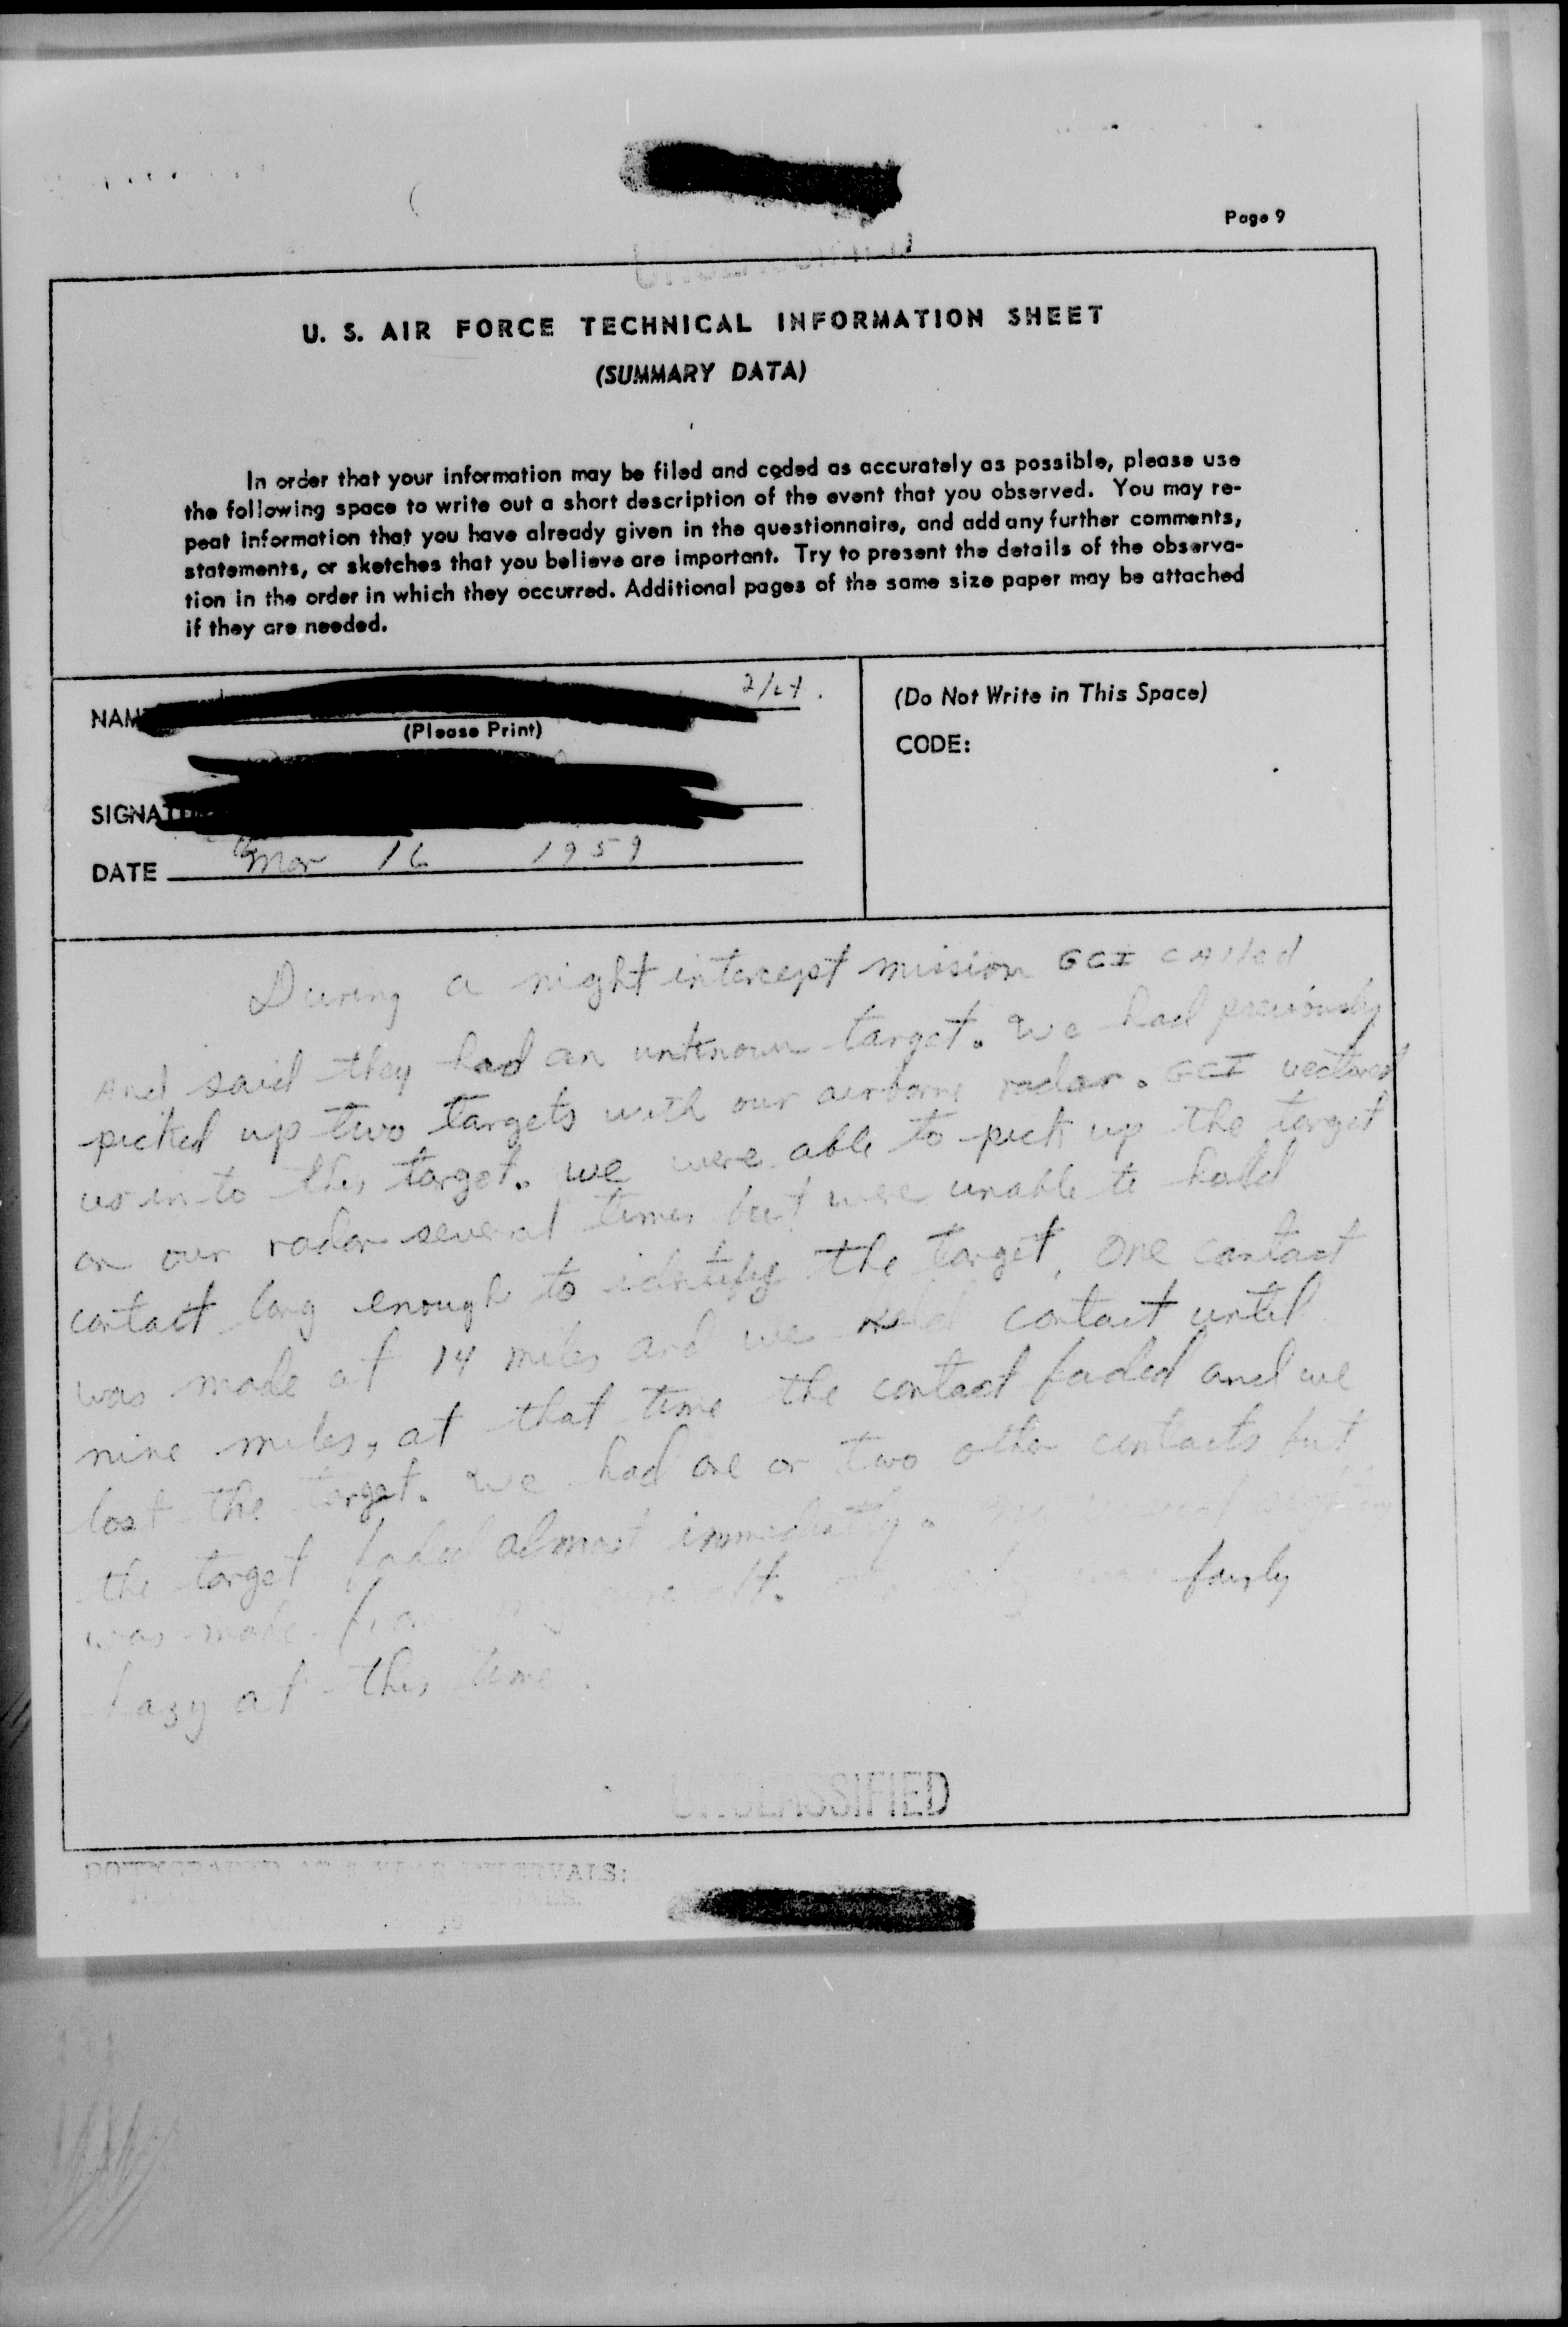 Page 9
U. S. AIR FORCE TECHNICAL INFORMATION SHEET
(SUMMARY DATA)
In order that your information may be filed and coded as accurately as possible, please use
the following space to write out a short description of the event that you observed. You may re-
peat information that you have already given in the questionnaire, and add any further comments,
statements, or sketches that you believe are important. Try to present the details of the observa-
tion in the order in which they occurred. Additional pages of the same size paper may be attached
if they are needed.
2/Lt.
(Please Print)
(Do Not Write in This Space)
CODE:
DATE Mar 16 1959
During a night intercept mission GCI called
And said they had an unknown target. We had previously
picked up two targets with our airborne radar. GCI vectored
us in to this target. we were able to pick up the target
on our radar several times but were unable to hold
contact long enough to identify the target, one contact
was made at 14 miles and we held contact until
nine miles, at that time the contact faded and we
lost the target. We had one or two other contacts but
the target faded almost immediately.
was made fairly
hazy at this time.
UNCLASSIFIED